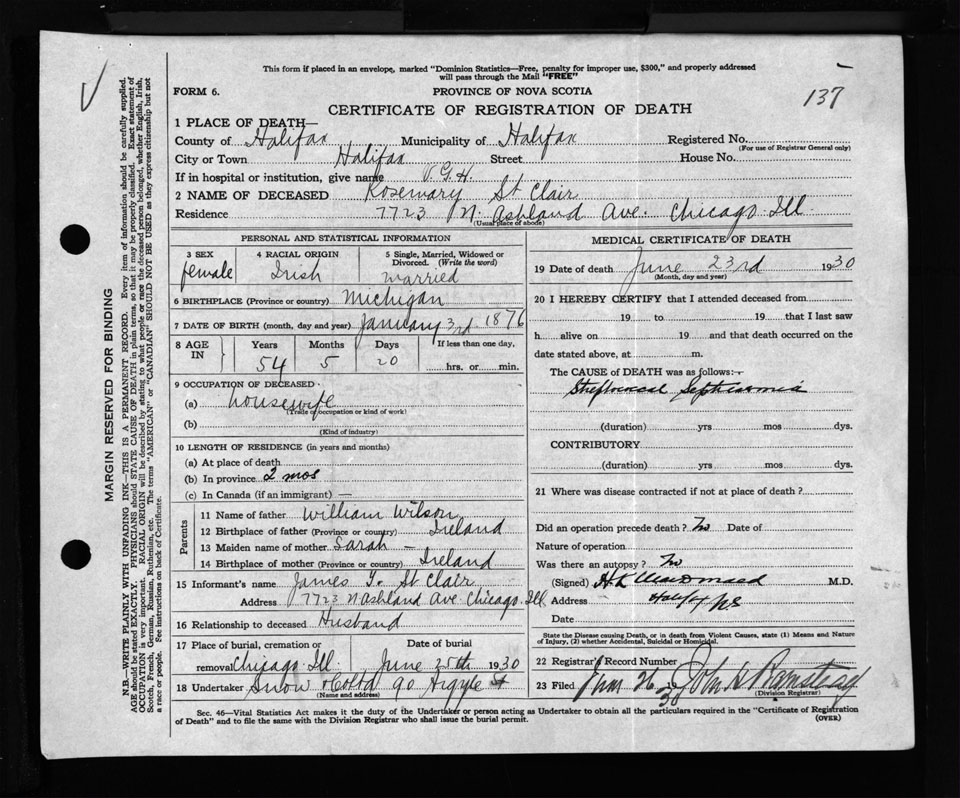 This form if placed in an envelope, marked "Dominion Statistics—Free, penalty for improper use, $300," and properly addressed
will pass through the Mail "FREE"
FORM 6.
PROVINCE OF NOVA SCOTIA
137
CERTIFICATE OF REGISTRATION OF DEATH
1 PLACE OF DEATH—
County of Halifax Municipality of Halifax Registered No.
(For use of Registrar General only)
City or Town Halifax Street House No.
If in hospital or institution, give name V.G.H.
2 NAME OF DECEASED Rosemary St Clair
Residence 7723 N. Ashland Ave. Chicago Ill
(Usual place of abode)
PERSONAL AND STATISTICAL INFORMATION
3 SEX 4 RACIAL ORIGIN 5 Single, Married, Widowed or
Divorced. (Write the word)
female Irish married
6 BIRTHPLACE (Province or country) Michigan
7 DATE OF BIRTH (month, day and year) January 3rd 1876
8 AGE IN Years Months Days If less than one day,
54 5 20 hrs. or min.
9 OCCUPATION OF DECEASED
(a) housewife
(Trade or occupation or kind of work)
(b)
(Kind of industry)
10 LENGTH OF RESIDENCE (in years and months)
(a) At place of death
(b) In province 2 mos
(c) In Canada (if an immigrant) —
Parents
11 Name of father William Wilson
12 Birthplace of father (Province or country) Ireland
13 Maiden name of mother Sarah —
14 Birthplace of mother (Province or country) Ireland
15 Informant's name James St Clair
Address 7723 N Ashland Ave Chicago Ill
16 Relationship to deceased Husband
17 Place of burial, cremation or Date of burial
removal Chicago Ill. June 25th 1930
18 Undertaker Snow & Co Ltd 90 Argyle St
(Name and address)
MEDICAL CERTIFICATE OF DEATH
19 Date of death June 23rd 1930
(Month, day and year)
20 I HEREBY CERTIFY that I attended deceased from
19 to 19 that I last saw
h alive on 19 and that death occurred on the
date stated above, at m.
The CAUSE of DEATH was as follows:—
Septicaemia
(duration) yrs mos dys.
CONTRIBUTORY
(duration) yrs mos dys.
21 Where was disease contracted if not at place of death?
Did an operation precede death? No Date of
Nature of operation
Was there an autopsy? No
(Signed) MacDonald M.D.
Address Halifax NS
Date
State the Disease causing Death, or in death from Violent Causes, state (1) Means and Nature
of Injury, (2) whether Accidental, Suicidal or Homicidal.
22 Registrar's Record Number
23 Filed June 26 30 John H
(Division Registrar)
Sec. 46—Vital Statistics Act makes it the duty of the Undertaker or person acting as Undertaker to obtain all the particulars required in the "Certificate of Registration
of Death" and to file the same with the Division Registrar who shall issue the burial permit.
(OVER)
MARGIN RESERVED FOR BINDING
N.B.—WRITE PLAINLY WITH UNFADING INK—THIS IS A PERMANENT RECORD. Every item of information should be carefully supplied.
AGE should be stated EXACTLY. PHYSICIANS should STATE CAUSE OF DEATH in plain terms, so that it may be properly classified. Exact statement of
OCCUPATION is very important. RACIAL ORIGIN will be described by stating to what people or race the deceased person belonged, whether English, Irish,
Scotch, French, German, Russian, Ruthenian, etc. The terms "AMERICAN" or "CANADIAN" SHOULD NOT BE USED as they express citizenship but not
a race or people. See instructions on back of Certificate.